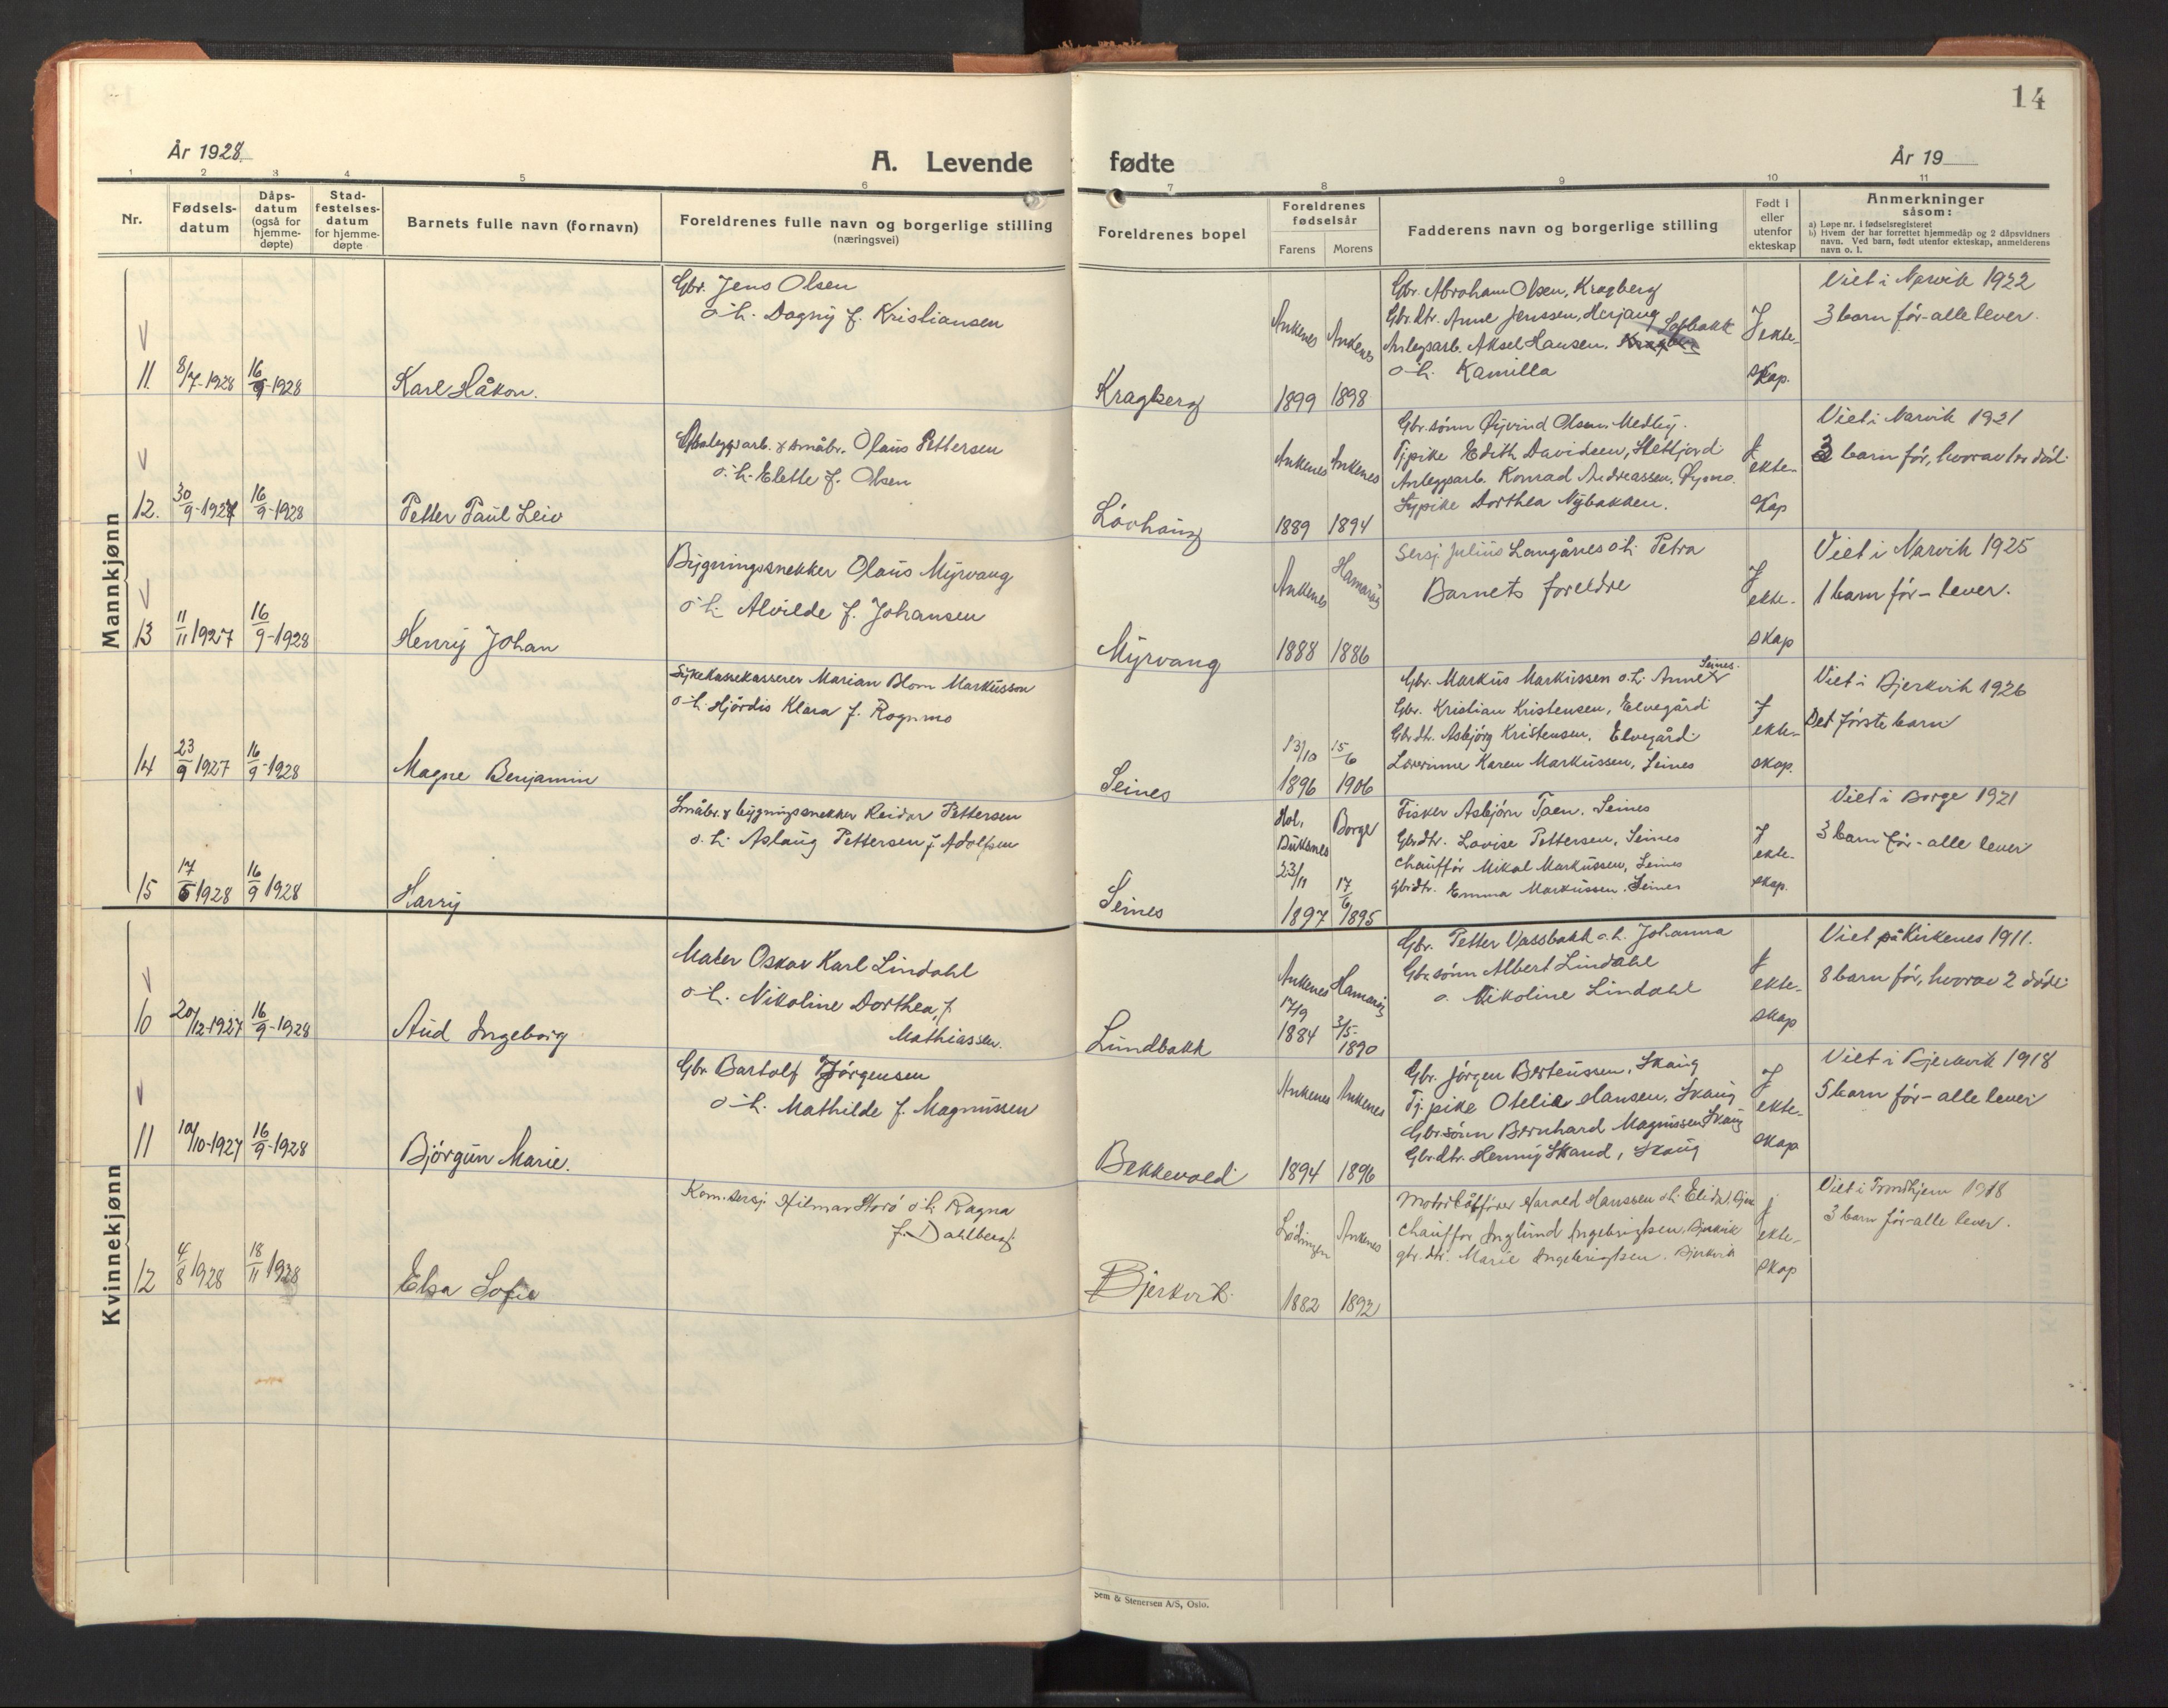 14
År 1928.
A. Levende fødte
År 19
1 2 3 4 5 6 7 8 9 10 11
Nr.
Fødsels-
datum
Dåps-
datum
(også for
hjemme-
døpte)
Stad-
festelses-
datum
for hjemme-
døpte
Barnets fulle navn (fornavn)
Foreldrenes fulle navn og borgerlige stilling
(næringsvei)
Foreldrenes bopel
Foreldrenes
fødselsår
Farens Morens
Fadderens navn og borgerlige stilling
Født i
eller
utenfor
ekteskap
Anmerkninger
såsom:
a) Løpe nr. i fødselsregisteret
b) Hvem der har forrettet hjemmedåp og 2 dåpsvidners
navn. Ved barn, født utenfor ekteskap, anmelderens
navn o. l.
Mannkjønn
11. 8/7-1928 16/9-1928
Karl Håkon.
Gbr. Jens Olsen
o. h. Dagny f. Kristiansen
Kragberg
Ankenes 1899
Ankenes 1898
Gbr. Abraham Olsen, Kragberg
Gbr.dtr. Anne Jenssen, Herjang
Anlegsarb. Aksel Hansen,
o. h. Kamilla
I ekte-
skap.
Viet i Narvik 1922
3 barn før-alle lever.
12. 30/9-1927 16/9-1928
Petter Paul Leiv
Anleggsarb. & småbr. Olaus Pettersen
o. h. Elette f. Olsen
Løvhaug
Ankenes 1889
Ankenes 1894
Gbr.sønn Øyvind Olsen, Medby.
Tjpike Edith Davidsen,
Anleggsarb. Konrad Andreassen,
Sypike Dorthea Nybakken.
I ekte-
skap
Viet i Narvik 1921
3 barn før, hvorav 1 er død.
13 11/11 1927 16/9-1928
Henry Johan
Bygningssnekker Olaus Myrvang
o. h. Alvilde f. Johansen
Myrvang
Ankenes 1888
Hamarøy 1886
Sersj. Julius Langånes o. h. Petra
Barnets foreldre
I ekte-
skap
Viet i Narvik 1925
1 barn før - lever.
14 23/9 1927 16/9-1928
Magne Benjamin
Sykekassekasserer Marian Blom Markusson
o. h. Hjördis Klara f. Rognmo
Seines
13/10 1896
15/6 1906
Gbr. Markus Markussen o. h. Anne Seines.
Gbr. Kristian Kristensen, Elvegård
Gbrdtr. Asbjørg Kristensen, Elvegård
Lærerinne Karen Markussen, Seines
I ekte-
skap.
Viet i Bjerkvik 1926
Det første barn
15 17/5 1928 16/9 1928
Harry
Småbr. & bygningssnekker Reidar Pettersen
o. h. Aslaug Pettersen f. Adolfsen
Seines
Hol, Buksnes 23/11 1897
Borge 17/6 1895
Fisker Asbjørn Taen. Seines
Gbrdtr. Lovise Pettersen, Seines
Chauffør Mikal Markussen, Seines
gbrdtr. Emma Markussen. Seines
I ekte-
skap.
Viet i Borge 1921
3 barn før - alle lever
Kvinnekjønn
10 20/12-1927 16/9-1928
Aud Ingeborg
Maler Oskar Karl Lindahl
o. h. Nikoline Dorthea, f.
Mathiassen.
Lundbakk
Ankenes 17/9 1884
Hamarøy 3/5-1890
Gbr. Petter Vassbakk o. h. Johanna
Gbr.sønn Albert Lindahl
o. Nikoline Lindahl
I ekte-
skap
Viet på Kirkenes 1911.
8 barn før, hvorav 2 døde
11 10/10-1927 16/9-1928
Bjørgun Marie.
Gbr Bartolf Jørgensen
o. h. Mathilde f. Magnussen
Bekkevold
Ankenes 1894
Ankenes 1896
Gbr. Jørgen Berteussen, Skaug
Tj. pike Otelie Hansen, Skaug
Gbr.sønn Bernhard Magnussen, Skaug
Gbr.dtr. Henny Skaud, Skaug
I ekte-
skap
Viet i Bjerkvik 1918
5 barn før - alle lever
12 4/8 1928 18/11 1928
Elsa Sofie
Kom.sersj. Hilmar Storø o. h. Ragna
f. Dahlberg
Bjerkvik
Lødingen 1882
Ankenes 1892
Motorbåtfører Harald Hanssen o. h. Elida,
Chauffør Inglund Ingebrigtsen, Bjerkvik
gbr. dtr. Marie Ingebrigtsen. Bjerkvik
I ekte-
skap
Viet i Trondhjem 1918
3 barn før-alle lever.
Sem & Stenersen A/S, Oslo.